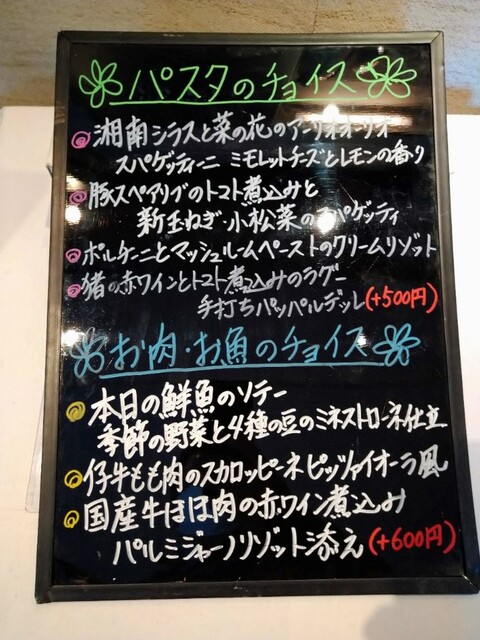 パスタのチョイス
湘南シラスと菜の花のアーリオオーリオ
スパゲッティーニ ミモレットチーズとレモンの香り
豚スペアリブのトマト煮込みと
新玉ねぎ・小松菜のスパゲッティ
ポルチーニとマッシュルームペーストのクリームリゾット
猪の赤ワインとトマト煮込みのラグー
手打ちパッパルデッレ(+500円)
お肉・お魚のチョイス
本日の鮮魚のソテー
季節の野菜と4種の豆のミネストローネ仕立
仔牛もも肉のスカロッピーネピッツァイオーラ風
国産牛ほほ肉の赤ワイン煮込み
パルミジャーノリゾット添え(+600円)